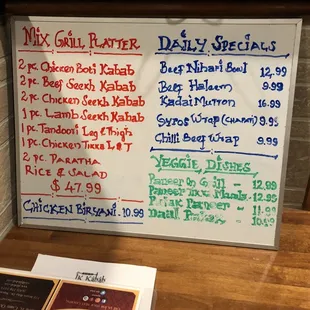 Mix Grill Platter
2 pc. Chicken Boti Kabab
2 pc. Beef Seekh Kabab
2 pc. Chicken Seekh Kabab
1 pc. Lamb Seekh Kabab
1 pc. Tandoori Leg & thigh
1 pc. Chicken Tikka L&T
2 pc. Paratha
Rice & Salad
$ 47.99
Chicken Biryani . 10.99
Daily Specials
Beef Nihari Bowl 12.99
Beef Haleem 9.99
Kadai Mutton 16.99
Gyros Wrap 9.99
Chilli Beef Wrap 9.99
Veggie Dishes
Paneer 12.99
Paneer Masala - 12.95
Palak Paneer - 11.99
Daal 10.99
Kabab